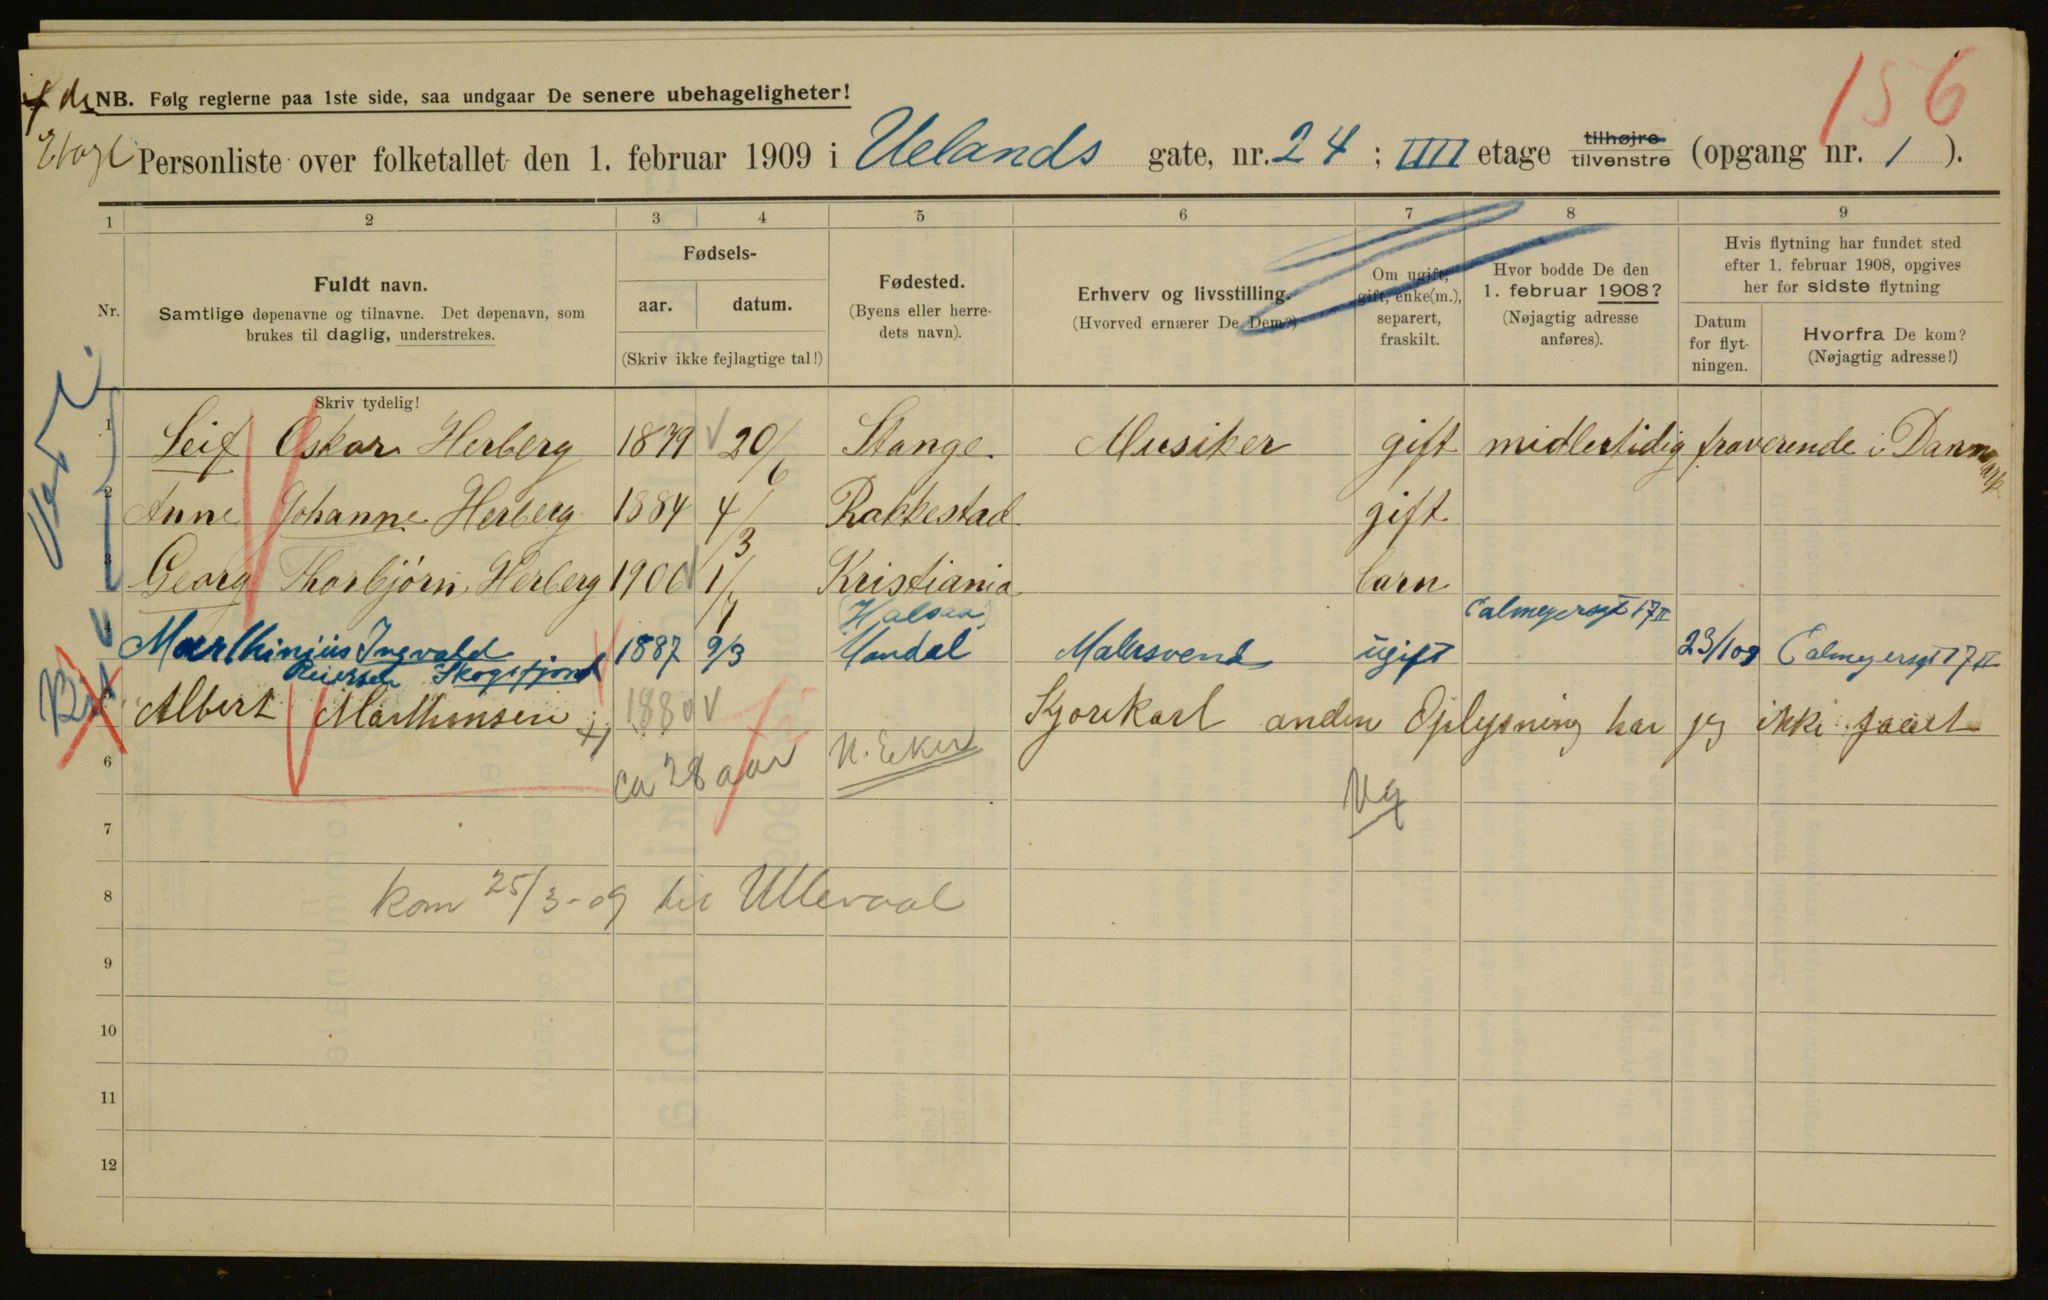 156
NB. Følg reglerne paa 1ste side, saa undgaar De senere ubehageligheter!
Etage Personliste over folketallet den 1. februar 1909 i Uelands gate, nr. 24 ; IIII etage tilhøjre tilvenstre (opgang nr. 1 ).
1 2 3 4 5 6 7 8 9
Nr.
Fuldt navn.
Samtlige døpenavne og tilnavne. Det døpenavn, som
brukes til daglig, understrekes.
Skriv tydelig!
Fødsels-
aar. datum.
(Skriv ikke fejlagtige tal!)
Fødested.
(Byens eller herre-
dets navn).
Erhverv og livsstilling.
(Hvorved ernærer De Dem?)
Om ugift,
gift, enke(m.),
separert,
fraskilt.
Hvor bodde De den
1. februar 1908?
(Nøjagtig adresse
anføres).
Hvis flytning har fundet sted
efter 1. februar 1908, opgives
her for sidste flytning
Datum
for flyt-
ningen.
Hvorfra De kom?
(Nøjagtig adresse!)
1 Leif Oskar Herberg 1879 20/6 Stange. Musiker gift midlertidig fraverende i Danmark
2 Anne Johanne Herberg 1884 4/3 Rakkestad gift
3 Georg Thorbjørn Herberg 1906 1/7 Kristiania barn
Halsaa Calmeyersgt 17 II
4 Marthinius Ingvald 1887 9/3 Mandal Malersvend ugift 23/1 09 Calmeyersgt 17 II
Reiersen Skogsfjord
Albert Marthinsen 1880 Kjørekarl anden Oplysning har jeg ikke faaet
6 ca 28 aar N. Eker
Ug
7
8 kom 25/3-09 til Ullevaal
9
10
11
12